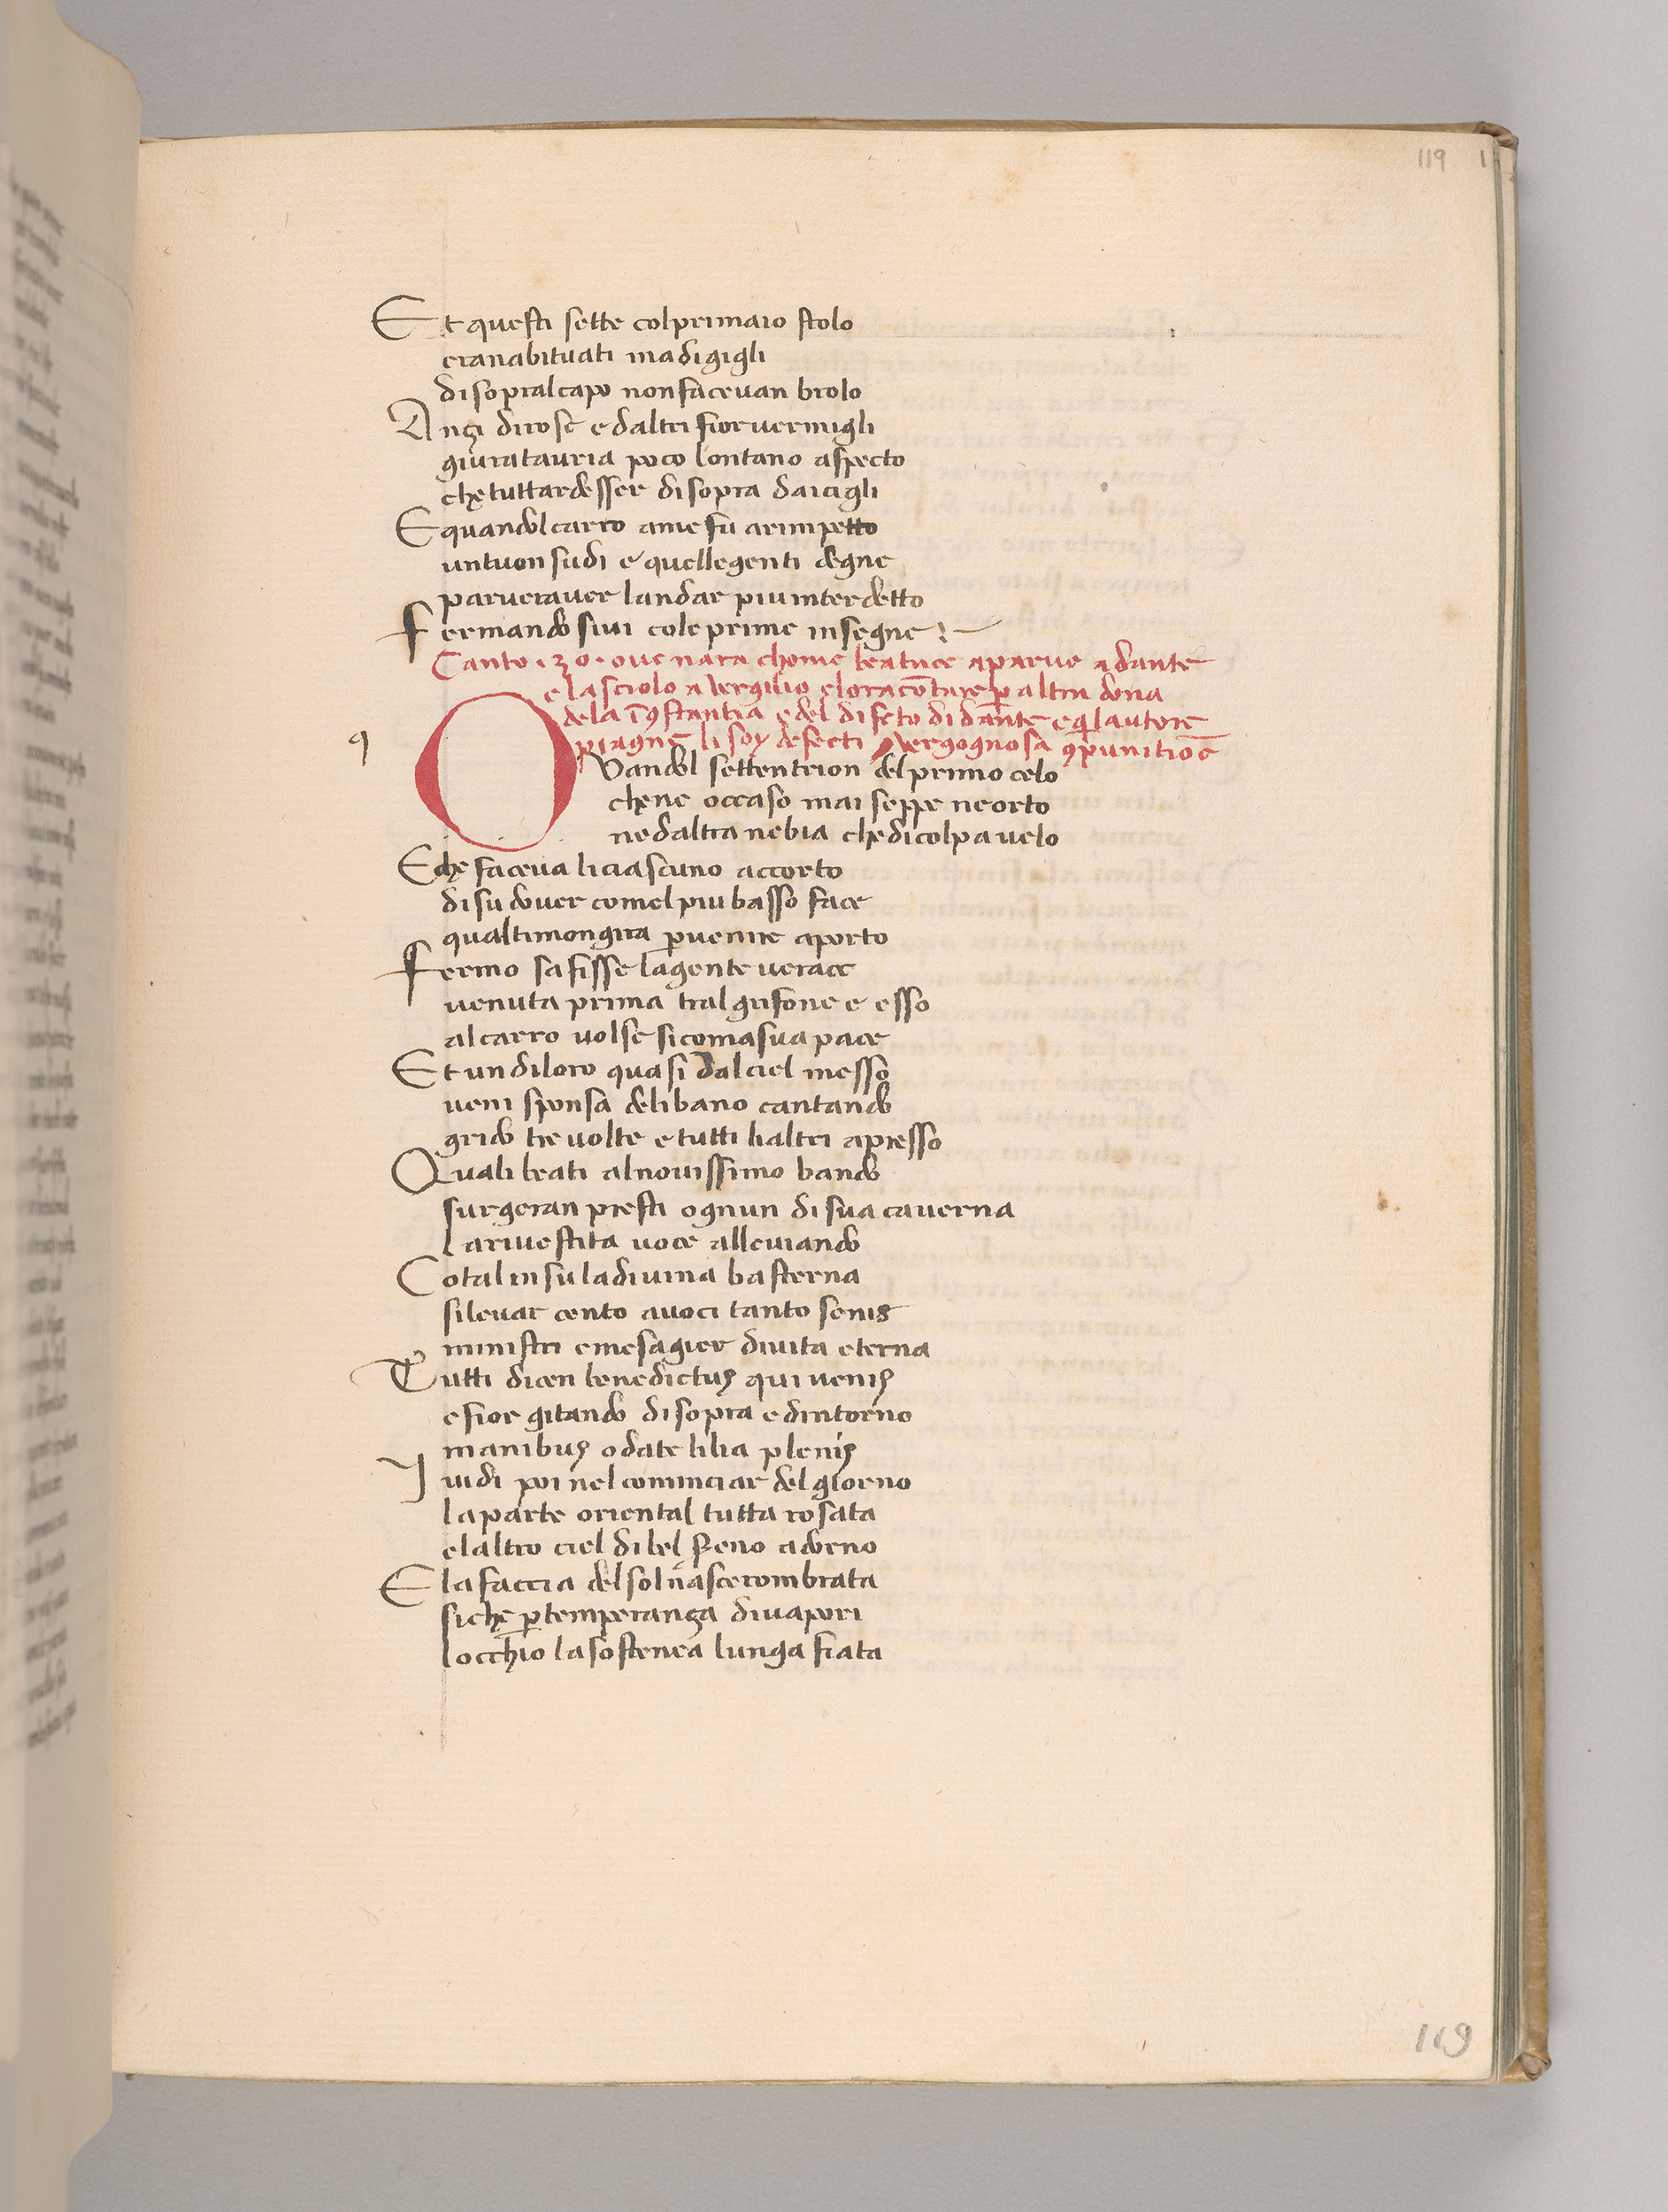 119
Et questi sette colprimaio stolo
eranabituati madigigli
disopralcapo nonfacevan brolo
Anzi dirose edaltri fiorvermigli
giuratauria poco lontano aspecto
che tuttardesser disopra daicigli
Equandolcarro ame fu arimpetto
untuon sudi e quellegenti degne
parveraver landar piuinterdetto
fermandosivi cole prime insegne
Canto .30. ove nara chome beatrice aparve a dante
e lasciolo a vergilio e lora cōture ꝑ altra dona
dela īꝯstantia e del difeto di dante e q̄ lautore
piagne li soy defecti vergognosa ꝯpunitiōe
q
Quandol settentrion delprimo celo
chene occaso mai seppe neorto
nedaltra nebia chedicolpa velo
Eche faceva liciascuno accorto
disu dover comelpiubasso face
qualtimongira ꝑvenire aporto
fermo safisse lagente verace
venuta prima tralgrifone e esso
alcarro volse sicomasua pace
Et un diloro quasi dalciel messo
veni sponsa delibano cantando
grido tre volte e tutti lialtri apresso
Quali beati alnovissimo bando
surgeran presti ognun disua caverna
larivestita voce alleviando
Cotal insuladivina basterna
silevar cento avoci tanto senis
ministri emesagier divita eterna
Tutti dicen benedictus qui venis
efior gitando disopra edintorno
manibus odate lilia plenis
I vidi poi nel cominciar del giorno
laparte oriental tutta rosata
elaltro ciel dibel sereno adorno
Ela faccia delsolnascerombrata
siche ꝑtemperanza divapori
locchio lasostenea lunga fiata
119